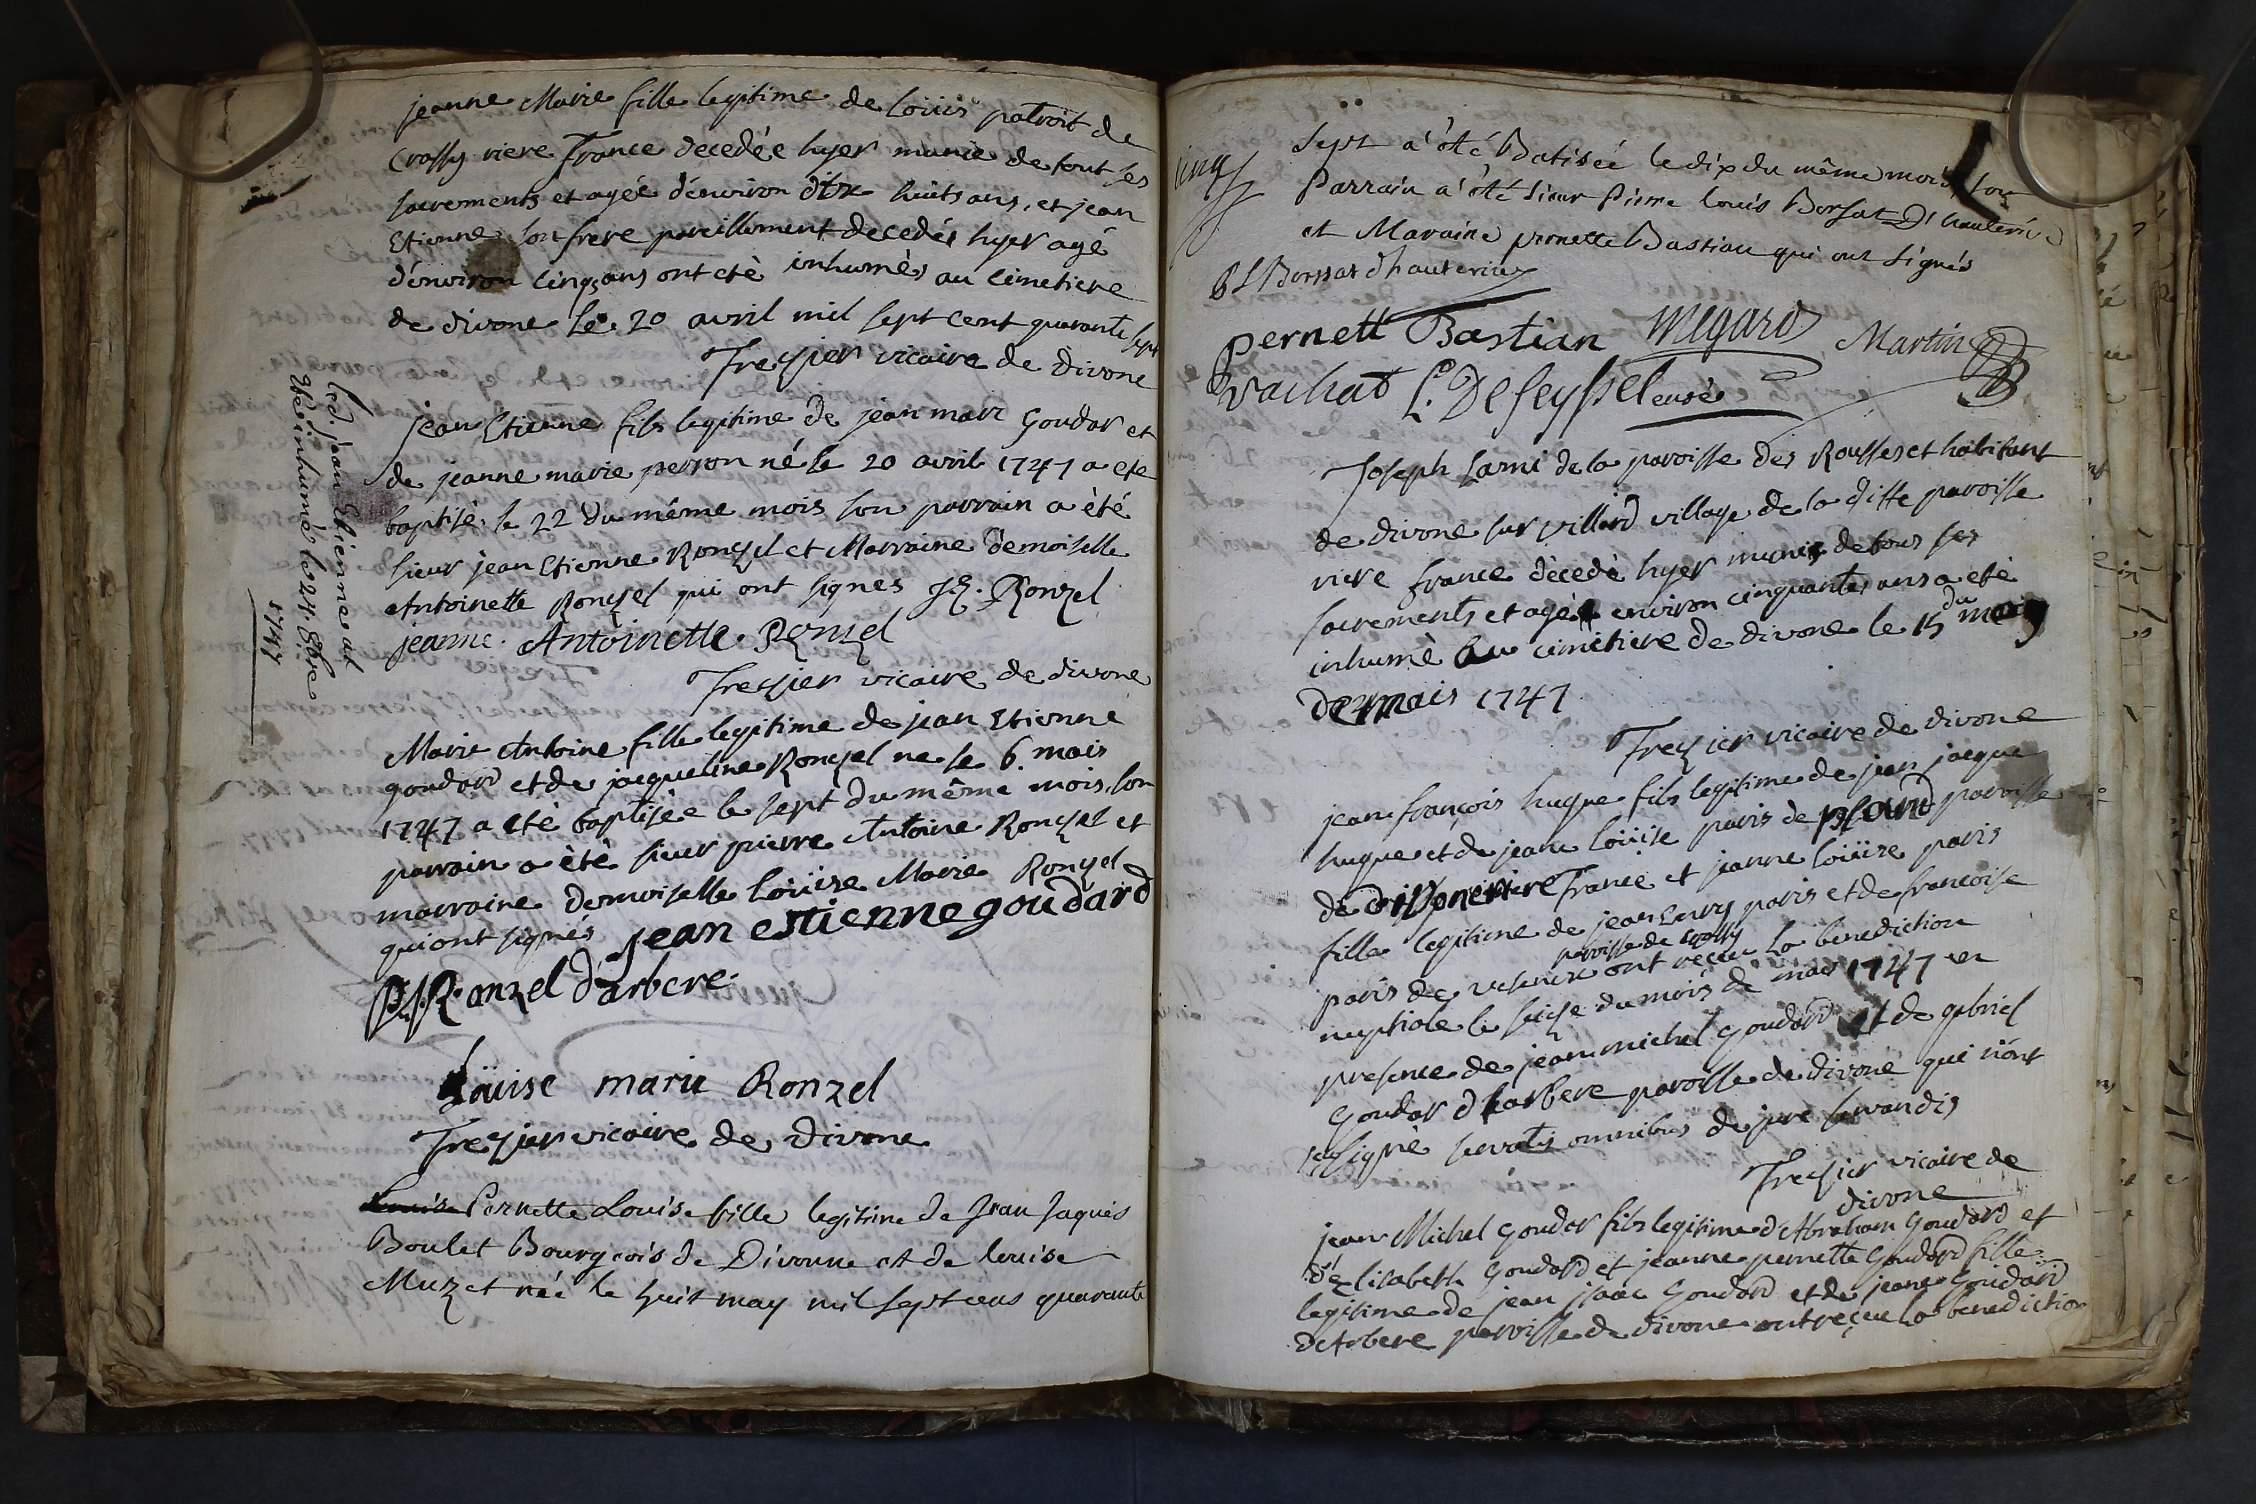 jeanne Marie fille legitime de loüis patroit de
Crassy riere France decedée hyer munie de tout ses
sacrements et agée d'environ dix huits ans, et jean
Etienne son frere pareillement decedés hyer agé
d'environ cinq ans ont etè inhumés au cimetiere
de divone le 20 avril mil sept cent quarante sept
Trezier vicaire de divone
jean Etienne fils legitime de jean marc Goudar et
de jeanne marie perron né le 20 avril 1747 a ete
baptisé le 22 du même mois son parrain a èté
sieur jean Etienne Ronzel et Marraine demoiselle
Antoinette Ronzel qui ont signes JE. Ronzel
jeanne. Antoinette. Ronzel
Trezier vicaire de divone
Led. jean Etienne at
été inhumé le 24. 8bre
1747
Marie Antoine fille legitime de jean Etienne
goudard et de jacqueline Ronzel ne le 6. mais
1747 a etè baptisée le sept du même mois, son
parrain a ètè sieur pierre Antoine Ronzel et
marraine demoiselle loüise Marie Ronzel
qui ont signés jean estienne goudard
P.A. Ronzel d'arbere.
Loüise marie Ronzel
Trezier vicaire de divone
Louise Pernette Louise fille legitime de Jean Jaques
Boulet Bourgeois de Divonne et de louise
Muzet née le huit may mil sept cens quarante
Sept a été Batisée le dix du même mois son
Parrain a été sieur Pierre louis Borsat D'hauterive
et Maraine pernette Bastian qui ont signés
PL Borssat d'hauterive
pernett Bastian Megard Martin
Vachat L. De seyssel curé
Joseph Lami de la paroisse des Rousses et habitant
de divone sur villard village de la ditte paroisse
riere france décedè hyer munis de tous ses
sacrements et agé environ cinquantes ans a eté
inhumè au cimetiere de divone le 15 du mois
de mais 1747
Trezier vicaire de divone
jean françois hugue fils legitime de jean jacque
hugue et de jeane loüise paris de pland paroisse
de divone riere France et jeanne loüize paris
fille legitime de jean paris et de francoise
paris de paroisse de Crassy ont reçeu la benediction
nuptiale le seize du mois de mais 1747 en
presence de jean michel goudard et de gabriel
Goudar d'harbere paroisse de divone qui n'ont
signè servatis omnibus de jure servandis
Trezier vicaire de
divone
jean Michel goudar fils legitime d'Abraham Goudard et
d'Elisabeth Goudard et jeanne pernette Goudard fille
legitime de jean isaac Goudard et de jeane Goudard
d'Arbere paroisse de divone ont reçeu la benediction